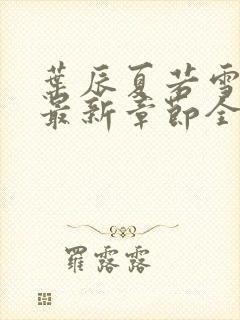 葉辰夏若雪
最新章節全
羅露露